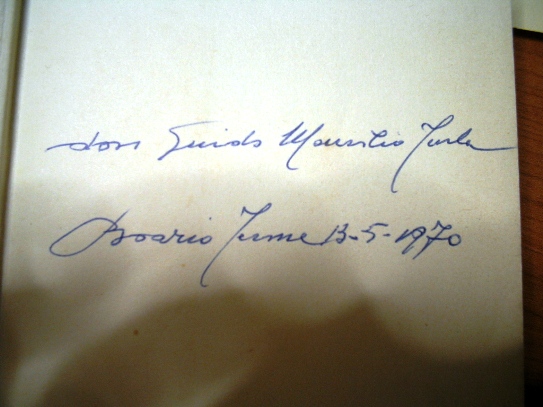 don Guido Maurilio Turla
Boario Terme 13-5-1970